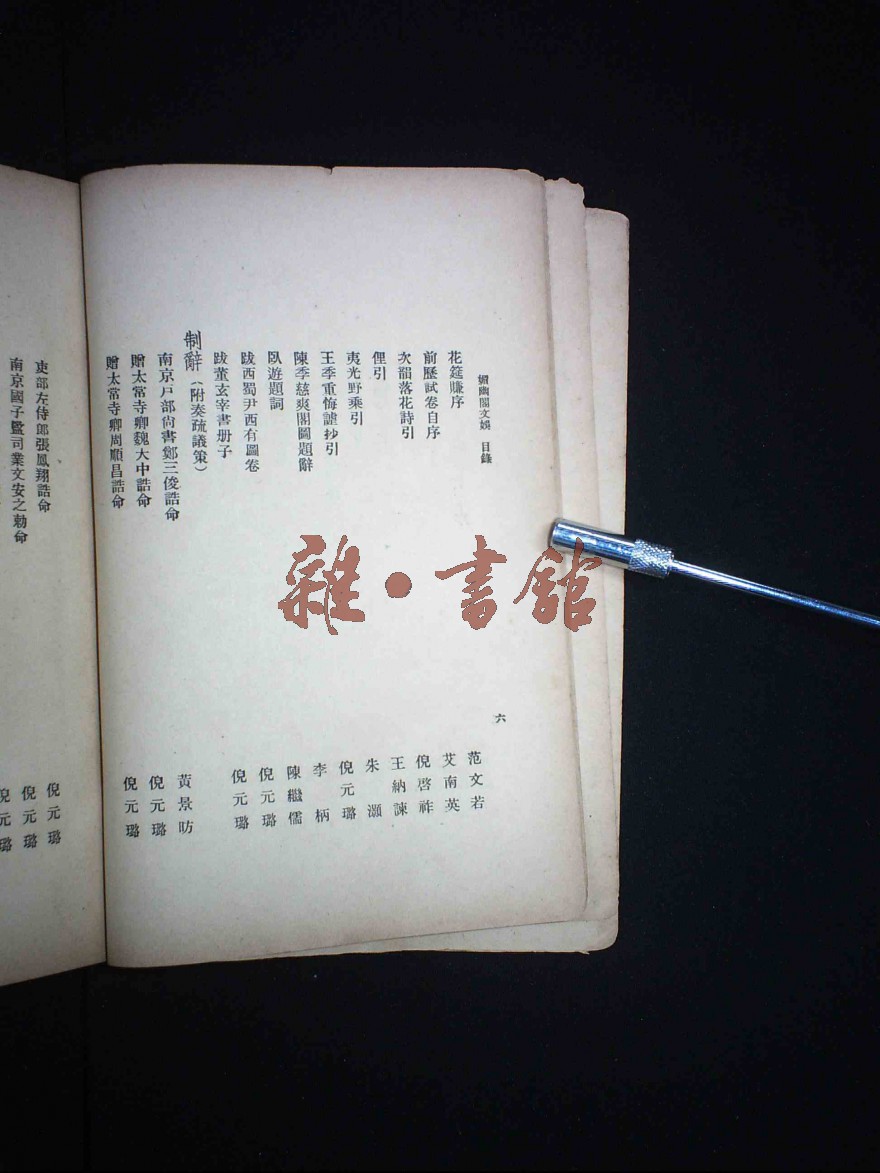 媚幽閣文娛 目錄 六
花筵賺序 范文若
前歷試卷自序 艾南英
次韻落花詩引 倪啓祚
俚引 王納諫
夷光野乘引 朱灝
王季重悔謔抄引 倪元璐
陳季慈爽閣圖題辭 李柄
臥遊題詞 陳繼儒
跋西蜀尹西有圖卷 倪元璐
跋董玄宰書册子 倪元璐
制辭（附奏疏議策）
南京戶部尙書鄭三俊誥命 黃景昉
贈太常寺卿魏大中誥命 倪元璐
贈太常寺卿周順昌誥命 倪元璐
吏部左侍郎張鳳翔誥命 倪元璐
南京國子監司業文安之勅命 倪元璐
倪元璐
雜·書館